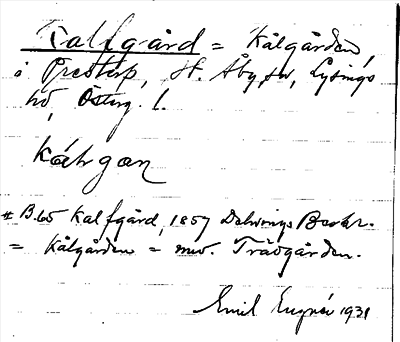 Kalfgård = Kålgården,
å Prestorp, St. Åby sn, Lysings
hd, Österg. l.
# B.65 Kalfgård, 1857 Delnings Beskr.
= Kålgården = nuv. Trädgården.
Emil 1931